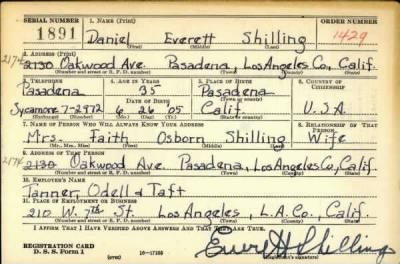 SERIAL NUMBER 1. NAME (Print) ORDER NUMBER
1891 Daniel Everett Shilling 1429
(First) (Middle) (Last)
2. ADDRESS (Print)
2174 2130 Oakwood Ave. Pasadena, Los Angeles Co., Calif.
(Number and street or R. F. D. number) (Town) (County) (State)
3. TELEPHONE 4. AGE IN YEARS 5. PLACE OF BIRTH 6. COUNTRY OF CITIZENSHIP
Pasadena 35 Pasadena
DATE OF BIRTH (Town or county)
Sycamore 7-2972 6 26 05 Calif. U.S.A.
(Mo.) (Day) (Yr.) (State or country)
7. NAME OF PERSON WHO WILL ALWAYS KNOW YOUR ADDRESS 8. RELATIONSHIP OF THAT PERSON
Mrs. Faith Osborn Shilling Wife
(Mr., Mrs., Miss) (First) (Middle) (Last)
9. ADDRESS OF THAT PERSON
2174 2130 Oakwood Ave. Pasadena, Los Angeles Co., Calif.
(Number and street or R. F. D. number) (Town) (County) (State)
10. EMPLOYER'S NAME
Tanner, Odell & Taft
11. PLACE OF EMPLOYMENT OR BUSINESS
210 W. 7th St. Los Angeles, L.A. Co., Calif.
(Number and street or R. F. D. number) (Town) (County) (State)
I AFFIRM THAT I HAVE VERIFIED ABOVE ANSWERS AND THAT THEY ARE TRUE.
REGISTRATION CARD
D. S. S. Form 1 (over) 16-17105 Everett Shilling